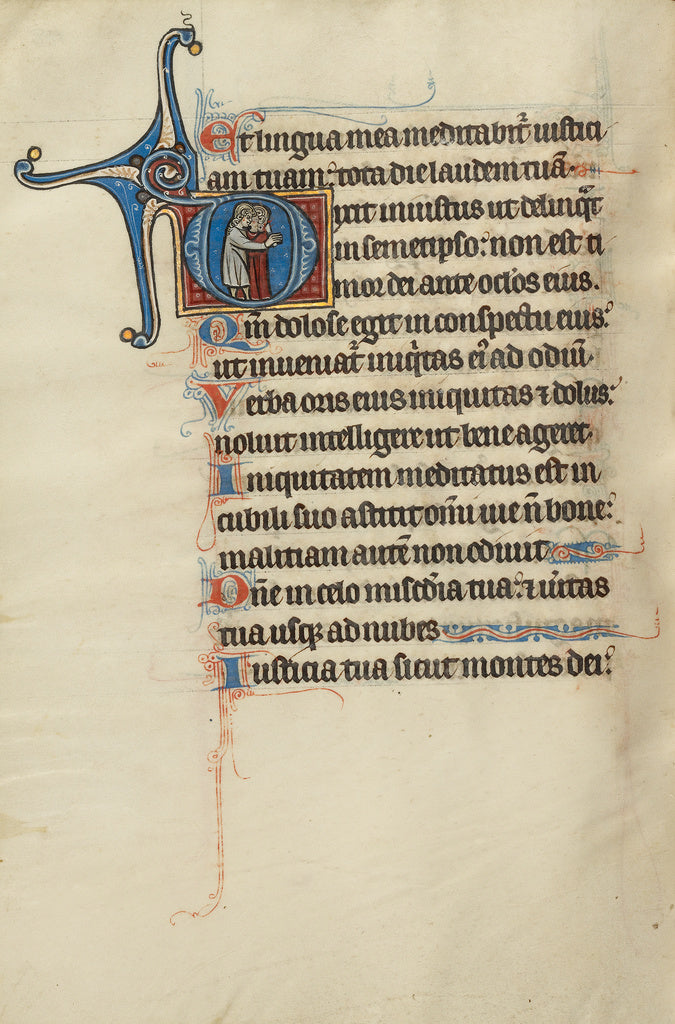 Et lingua mea meditabit᷑ iustici
am tuam: tota die laudem tuā.
Dixit iniustus ut delinq̄t
in semetipso: non est ti
mor dei ante oclos eius.
Qm̄ dolose egit in conspectu eius:
ut inueniat᷑ iniq̄tas ei᷒ ad odiū.
Verba oris eius iniquitas ⁊ dolus:
noluit intelligere ut bene ageret.
Iniquitatem meditatus est in
cubili suo astitit om̄i uie n̄ bone:
malitiam autē non odiuit
Dn̄e in celo misc̄dia tua: ⁊ ūitas
tua usq̨ ad nubes
Iusticia tua sicut montes dei: